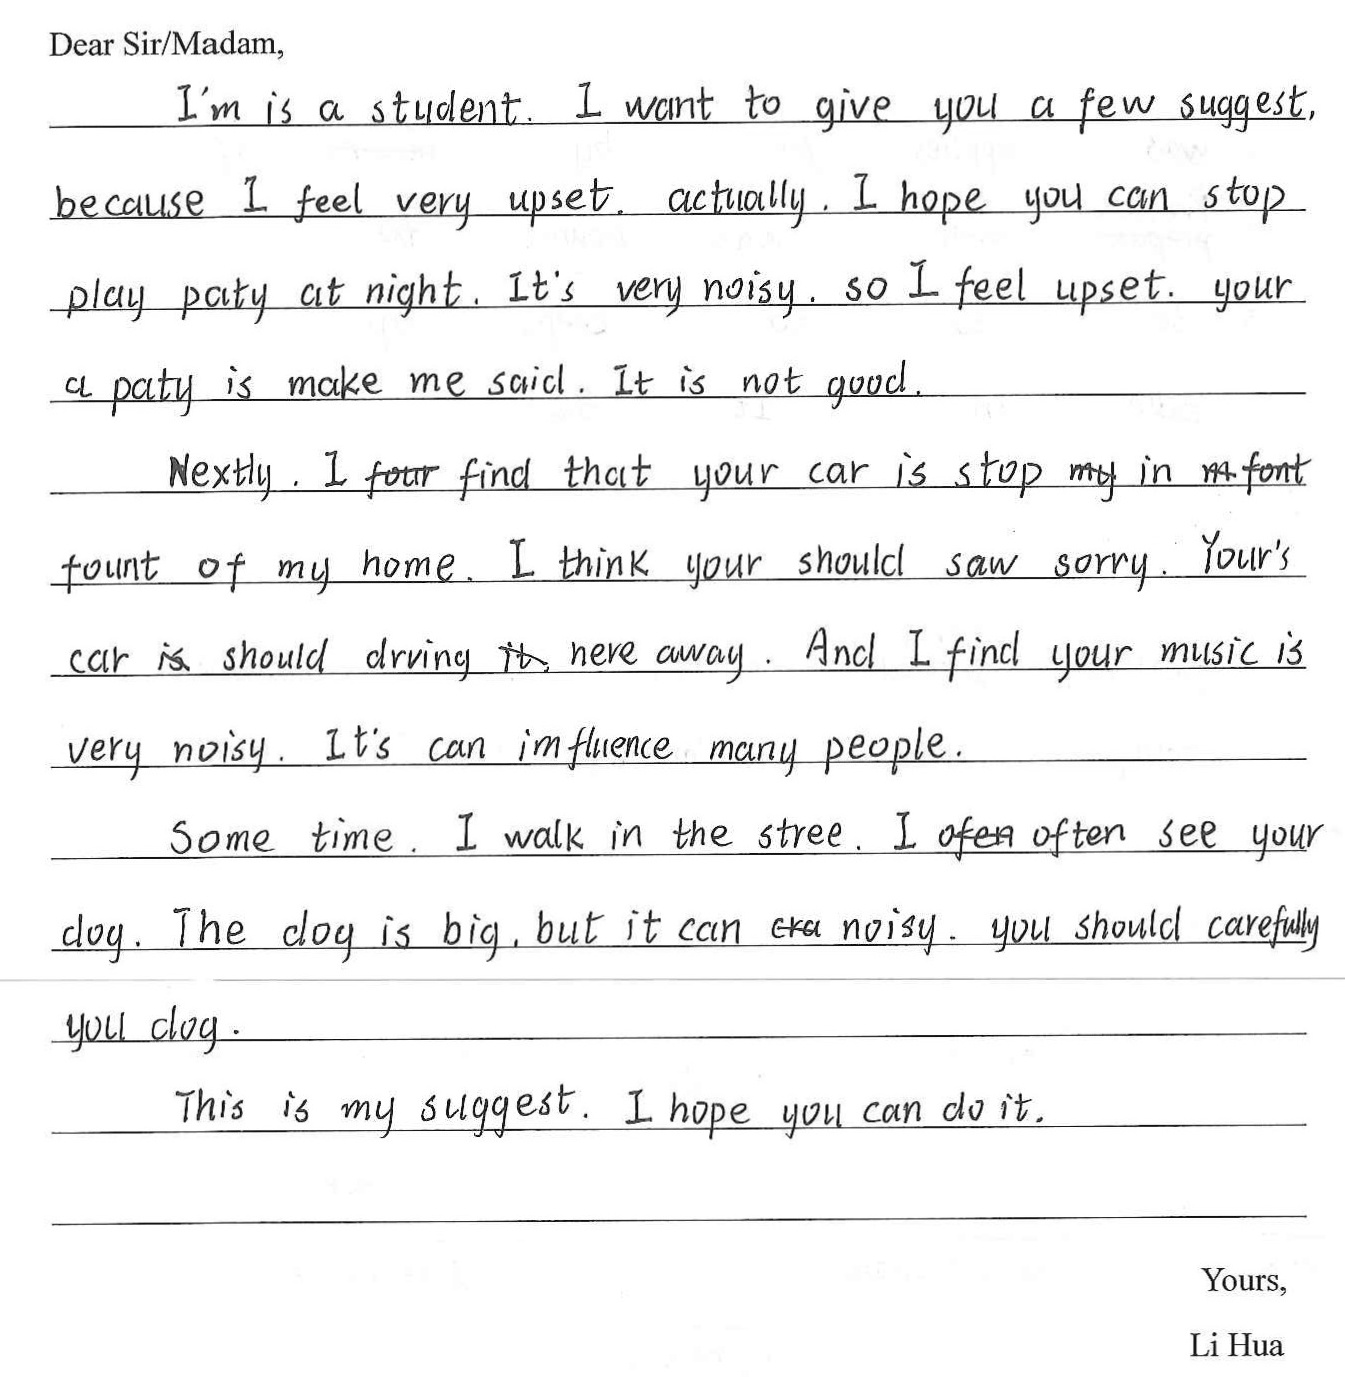 Dear Sir/Madam,
I'm is a student. I want to give you a few suggest,
because I feel very upset. actually. I hope you can stop
play paty at night. It's very noisy. so I feel upset. your
a paty is make me said. It is not good.
Nextly. I four find that your car is stop my in font
fount of my home. I think your should saw sorry. Your's
car is should drving it here away. And I find your music is
very noisy. It's can imfluence many people.
Some time. I walk in the stree. I ofen often see your
dog. The dog is big, but it can noisy. you should carefully
you dog.
This is my suggest. I hope you can do it.
Yours,
Li Hua